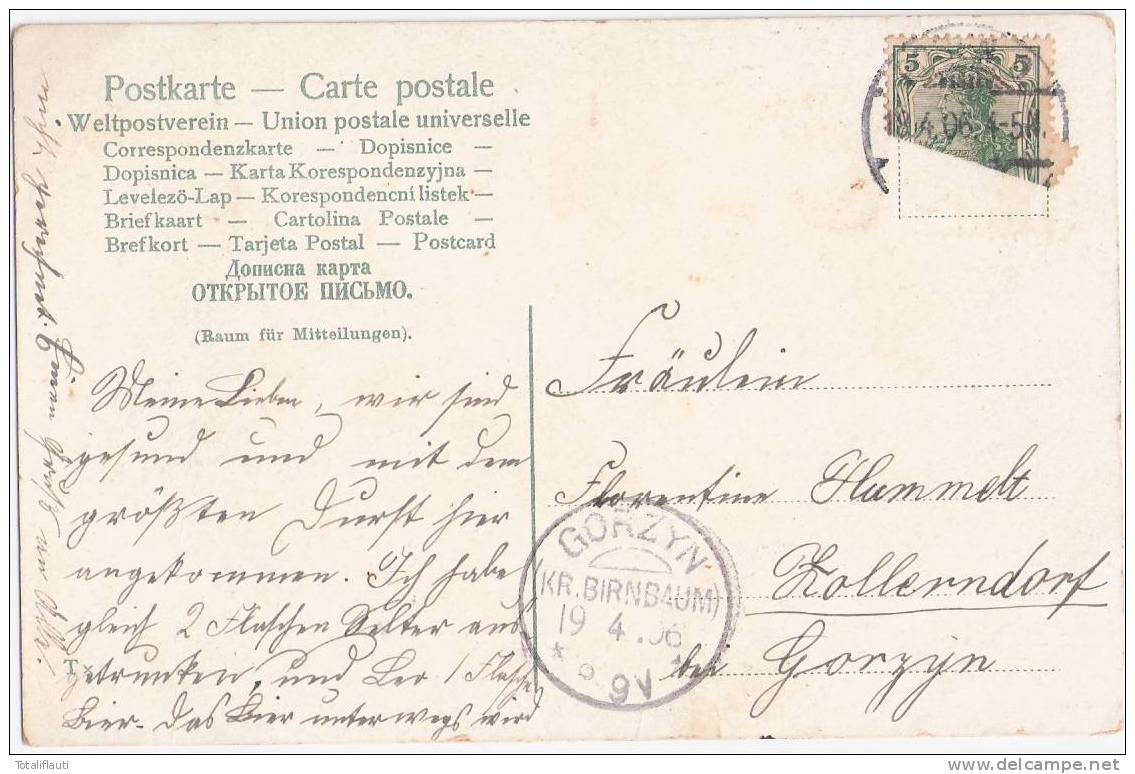 Postkarte — Carte postale
Weltpostverein — Union postale universelle
Correspondenzkarte — Dopisnice —
Dopisnica — Karta Korespondenzyjna —
Levelező-Lap — Korespondencní listek —
Briefkaart — Cartolina Postale —
Brefkort — Tarjeta Postal — Postcard
Дописна карта
ОТКРЫТОЕ ПИСЬМО.
(Raum für Mitteilungen).
Meine Lieben, wir sind
gesund und mit dem
größten Durst hier
angekommen. Ich habe
gleich 2 Flaschen Selter aus
getrunken, und Leo 1 Flasche
Bier. Das Bier unterwegs wird
nicht
Grüße an Alle.
5 5
18.4.06. 4-5N.
Fräulein
Florentine Hummelt
Zollerndorf
bei Gorzyn
GORZYN
(KR. BIRNBAUM)
19 4.06
* 8-9V *
Totaliflauti
delcampe.net